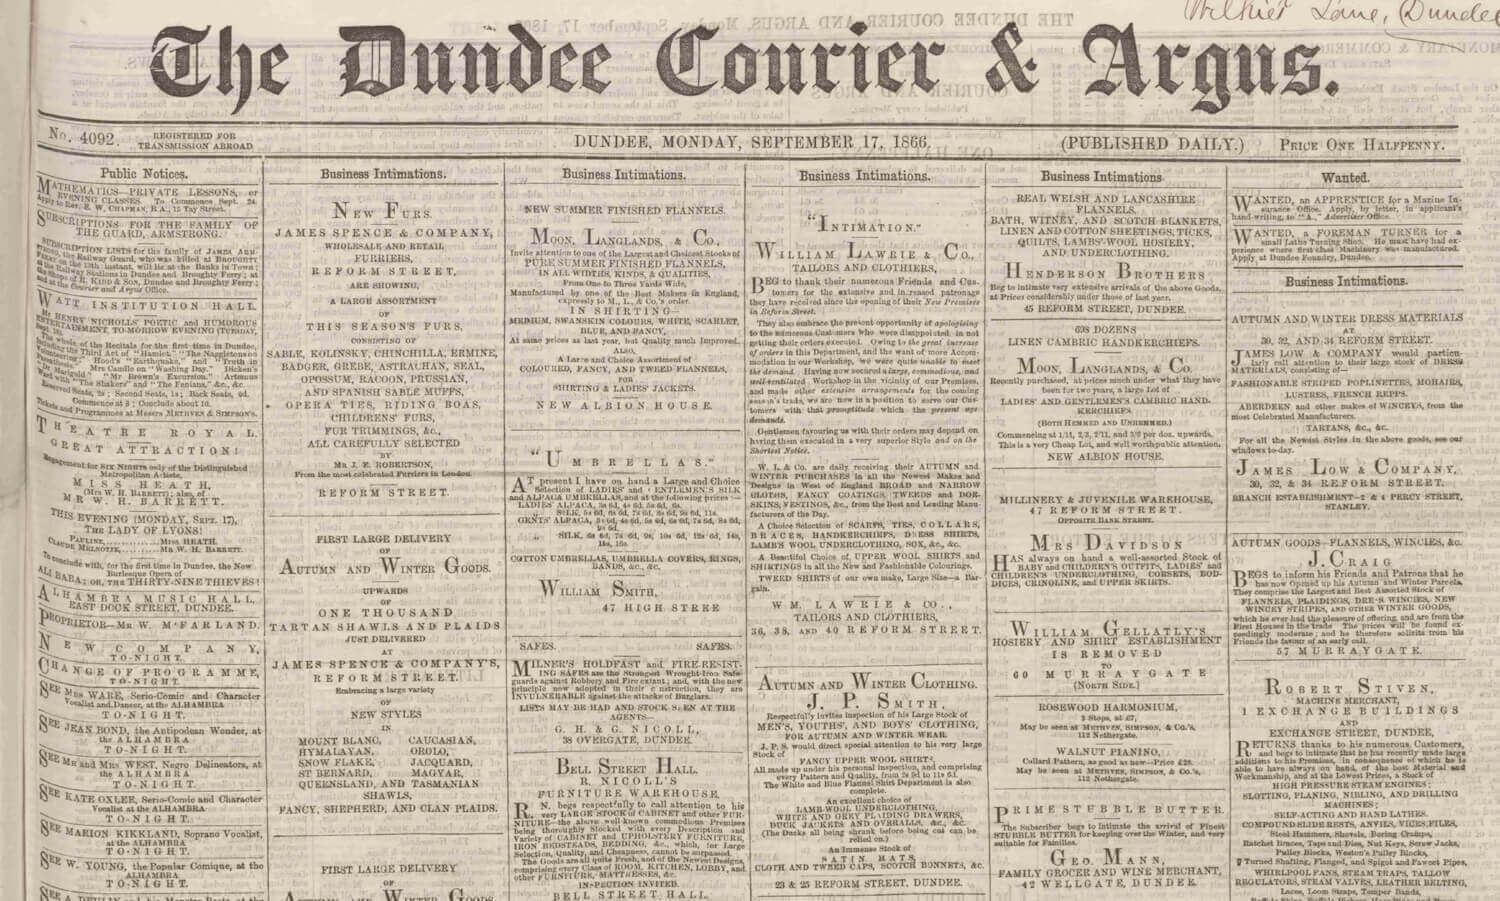 Wilkies Lane, Dundee
The Dundee Courier & Argus.
No. 4092.
REGISTERED FOR
TRANSMISSION ABROAD
DUNDEE, MONDAY, SEPTEMBER 17, 1866.
(PUBLISHED DAILY.)
PRICE ONE HALFPENNY.
Public Notices.
MATHEMATICS—PRIVATE LESSONS, or
EVENING CLASSES. To Commence Sept. 24.
Apply to Rev. E. W. CHAPMAN, B.A., 15 Tay Street.
SUBSCRIPTIONS FOR THE FAMILY OF
THE GUARD, ARMSTRONG.
SUBSCRIPTION LISTS for the family of JAMES ARM-
STRONG, the Railway Guard, who was killed at BROUGHTY
FERRY on the 13th instant, will lie at the Banks in Town;
at the Railway Stations in Dundee and Broughty Ferry; at
the Shops of R. KIDD & SON, Dundee and Broughty Ferry;
and at the Courier and Argus Office.
WATT INSTITUTION HALL
Mr HENRY NICHOLLS' POETIC and HUMOROUS
ENTERTAINMENT TO-MORROW EVENING TUESDAY,
The whole of the Recitals for the first time in Dundee,
including the Third Act of "Hamlet." "The Naggletons on
Hood's "Earthquake," and "Truth in
Mrs Caudle on "Washing Day." Dicken's
"Mr Brown's Excursion." Artemus
Ward with "The Shakers" and "The Fenians," &c., &c.
Reserved Seats, 2s; Second Seats, 1s; Back Seats, 6d.
Commence at 8; Conclude about 10.
Tickets and Programmes at Messrs METHVEN & SIMPSON'S.
THEATRE ROYAL
GREAT ATTRACTION!
Engagement for SIX NIGHTS only of the Distinguished
Metropolitan Artiste,
MISS HEATH,
(Mrs W. H. BARRETT); also, of
MR W. H. BARRETT.
THIS EVENING (MONDAY, SEPT. 17),
THE LADY OF LYONS!
PAULINE,............MISS HEATH.
CLAUDE MELNOTTE,............MR W. H. BARRETT.
To conclude with, for the first time in Dundee, the New
Burlesque Opera of
ALI BABA; OR, THE THIRTY-NINE THIEVES!
ALHAMBRA MUSIC HALL.
EAST DOCK STREET, DUNDEE.
PROPRIETOR—MR W. M'FARLAND.
NEW COMPANY,
TO-NIGHT.
CHANGE OF PROGRAMME,
TO-NIGHT.
SEE MRS WARE, Serio-Comic and Character
Vocalist and Dancer, at the ALHAMBRA
TO-NIGHT.
SEE JEAN BOND, the Antipodean Wonder, at
the ALHAMBRA
TO-NIGHT.
SEE MR and MRS WEST, Negro Delineators, at
the ALHAMBRA
TO-NIGHT.
SEE KATE OXLEE, Serio-Comic and Character
Vocalist at the ALHAMBRA
TO-NIGHT.
SEE MARION KIKKLAND, Soprano Vocalist,
at the ALHAMBRA
TO-NIGHT.
SEE W. YOUNG, the Popular Comique, at the
ALHAMBRA
TO-NIGHT.
Business Intimations.
NEW FURS.
JAMES SPENCE & COMPANY,
WHOLESALE AND RETAIL
FURRIERS,
REFORM STREET,
ARE SHOWING,
A LARGE ASSORTMENT
OF
THIS SEASON'S FURS,
CONSISTING OF
SABLE, KOLINSKY, CHINCHILLA, ERMINE,
BADGER, GREBE, ASTRACHAN, SEAL,
OPOSSUM, RACOON, PRUSSIAN,
AND SPANISH SABLE MUFFS,
OPERA TIES, RIDING BOAS,
CHILDRENS' FURS,
FUR TRIMMINGS, &c.,
ALL CAREFULLY SELECTED
BY
MR J. E. ROBERTSON,
From the most celebrated Furriers in London.
REFORM STREET
FIRST LARGE DELIVERY
OF
AUTUMN AND WINTER GOODS.
UPWARDS
OF
ONE THOUSAND
TARTAN SHAWLS AND PLAIDS
JUST DELIVERED
AT
JAMES SPENCE & COMPANY'S,
REFORM STREET.
Embracing a large variety
OF
NEW STYLES
IN
MOUNT BLANC, CAUCASIAN,
HYMALAYAN, OROLO,
SNOW FLAKE, JACQUARD,
ST BERNARD, MAGYAR,
QUEENSLAND, AND TASMANIAN
SHAWLS,
FANCY, SHEPHERD, AND CLAN PLAIDS.
FIRST LARGE DELIVERY
OF
AUTUMN AND WINTER GOODS.
Business Intimations.
NEW SUMMER FINISHED FLANNELS.
MOON, LANGLANDS, & CO.,
Invite attention to one of the Largest and Choicest Stocks of
PURE SUMMER FINISHED FLANNELS,
IN ALL WIDTHS, KINDS, & QUALITIES,
From One to Three Yards Wide,
Manufactured by one of the Best Makers in England,
expressly to M., L., & Co.'s order.
IN SHIRTING—
MEDIUM, SWANSKIN COLOURS, WHITE, SCARLET,
BLUE, AND FANCY,
At same prices as last year, but Quality much Improved.
ALSO,
A Large and Choice Assortment of
COLOURED, FANCY, AND TWEED FLANNELS,
FOR
SHIRTING & LADIES' JACKETS.
NEW ALBION HOUSE.
"UMBRELLAS."
AT present I have on hand a Large and Choice
Selection of LADIES' and GENTLEMEN'S SILK
and ALPACA UMBRELLAS, and at the following prices:—
LADIES' ALPACA, 3s 6d, 4s 6d, 5s 6d, 6s.
COTTON UMBRELLAS, UMBRELLA COVERS, RINGS,
BANDS, &c., &c.
WILLIAM SMITH,
47 HIGH STREE
SAFES. SAFES.
MILNER'S HOLDFAST and FIRE-RESIST-
ING SAFES are the Strongest Wrought-Iron Safe-
guards against Robbery and Fire extant; and, with the new
principle now adopted in their construction, they are
INVULNERABLE against the attacks of Burglars.
LISTS MAY BE HAD AND STOCK SEEN AT THE
AGENTS—
G. H. & G. NICOLL,
38 OVERGATE, DUNDEE.
BELL STREET HALL.
R. NICOLL'S
FURNITURE WAREHOUSE.
R. N. begs respectfully to call attention to his
very LARGE STOCK of CABINET and other FUR-
NITURE—the above well-known commodious Premises
being thoroughly Stocked with every Description and
Variety of CABINET and UPHOLSTERY FURNITURE,
IRON BEDSTEADS, BEDDING, &c., which, for Large
Selection, Quality, and Cheapness, cannot be surpassed.
The Goods are all quite Fresh, and of the Newest Designs,
comprising every Class of ROOM, KITCHEN, LOBBY, and
other FURNITURE, MATTRESSES, &c.
INSPECTION INVITED.
BELL STREET HALL.
Business Intimations.
"INTIMATION."
WILLIAM LAWRIE & CO.,
TAILORS AND CLOTHIERS,
BEG to thank their numerous Friends and Cus-
tomers for the extensive and increased patronage
they have received since the opening of their New Premises
in Reform Street.
They also embrace the present opportunity of apologising
to the numerous Customers who were disappointed in not
getting their orders executed. Owing to the great increase
of orders in this Department, and the want of more Accom-
modation in our Workshop, we were quite unable to meet
the demand. Having now secured a large, commodious, and
well-ventilated Workshop in the vicinity of our Premises,
and made other extensive arrangements for the coming
season's trade, we are now in a position to serve our Cus-
tomers with that promptitude which the present age
demands.
Gentlemen favouring us with their orders may depend on
having them executed in a very superior Style and on the
Shortest Notice.
W. L. & Co. are daily receiving their AUTUMN and
WINTER PURCHASES in all the Newest Makes and
Designs in West of England BROAD and NARROW
CLOTHS, FANCY COATINGS, TWEEDS and DOE-
SKINS, VESTINGS, &c., from the Best and Leading Manu-
facturers of the Day.
A Choice Selection of SCARFS, TIES, COLLARS,
BRACES, HANDKERCHIEFS, DRESS SHIRTS,
LAMB'S WOOL UNDERCLOTHING, SOX, &c., &c.
A Beautiful Choice of UPPER WOOL SHIRTS and
SHIRTINGS in all the New and Fashionable Colourings.
TWEED SHIRTS of our own make, Large Size—a Bar-
gain.
WM. LAWRIE & CO.,
TAILORS AND CLOTHIERS,
36, 38, AND 40 REFORM STREET.
AUTUMN AND WINTER CLOTHING.
J. P. SMITH,
Respectfully invites inspection of his Large Stock of
MEN'S, YOUTHS', AND BOYS' CLOTHING,
FOR AUTUMN AND WINTER WEAR.
J. P. S. would direct special attention to his very large
Stock of
FANCY UPPER WOOL SHIRTS,
All made up under his personal inspection, and comprising
every Pattern and Quality, from 5s 9d to 11s 6d.
The White and Blue Flannel Shirt Department is also
complete.
An excellent choice of
LAMB-WOOL UNDERCLOTHING,
WHITE AND GREY PLAIDING DRAWERS,
DUCK JACKETS AND OVERALLS, &c., &c.
(The Ducks all being shrunk before being cut can be
relied on.)
An Immense Stock of
SATIN HATS,
CLOTH AND TWEED CAPS, SCOTCH BONNETS, &c.
23 & 25 REFORM STREET, DUNDEE.
Business Intimations
REAL WELSH AND LANCASHIRE
FLANNELS.
BATH, WITNEY, AND SCOTCH BLANKETS,
LINEN AND COTTON SHEETINGS, TICKS,
QUILTS, LAMBS'-WOOL HOSIERY,
AND UNDERCLOTHING.
HENDERSON BROTHERS
Beg to intimate very extensive arrivals of the above Goods,
at Prices considerably under those of last year.
45 REFORM STREET, DUNDEE.
698 DOZENS
LINEN CAMBRIC HANDKERCHIEFS.
MOON, LANGLANDS, & CO.
Recently purchased, at prices much under what they have
been for two years, a large Lot of
LADIES' AND GENTLEMEN'S CAMBRIC HAND-
KERCHIEFS
(BOTH HEMMED AND UNHEMMED.)
Commencing at 1/11, 2/3, 2/11, and 3/9 per doz. upwards.
This is a very Cheap Lot, and well worth public attention,
NEW ALBION HOUSE.
MILLINERY & JUVENILE WAREHOUSE,
47 REFORM STREET.
OPPOSITE BANK STREET.
MRS DAVIDSON
HAS always on hand a well-assorted Stock of
BABY and CHILDREN'S OUTFITS, LADIES' and
CHILDREN'S UNDERCLOTHING, CORSETS, BOD-
DICES, CRINOLINE, and UPPER SKIRTS.
WILLIAM GELLATLY'S
HOSIERY AND SHIRT ESTABLISHMENT
IS REMOVED
TO
60 MURRAYGATE
(NORTH SIDE.)
ROSEWOOD HARMONIUM,
3 Stops, at £7,
May be seen at METHVEN, SIMPSON, & Co.'s,
112 Nethergate.
WALNUT PIANINO,
Collard Pattern, as good as new—Price £28.
May be seen at METHVEN, SIMPSON, & Co.'s,
112 Nethergate.
PRIME STUBBLE BUTTER.
The Subscriber begs to intimate the arrival of Finest
STUBBLE BUTTER for keeping over the Winter, and very
suitable for Families.
GEO. MANN,
FAMILY GROCER AND WINE MERCHANT,
42 WELLGATE, DUNDEE.
Wanted.
WANTED, an APPRENTICE for a Marine In-
surance Office. Apply, by letter, in applicant's
hand-writing, to "A.," Advertiser Office.
WANTED, a FOREMAN TURNER for a
small Lathe Turning Shop. He must have had ex-
perience where first-class Machinery was manufactured.
Apply at Dundee Foundry, Dundee.
Business Intimations.
AUTUMN AND WINTER DRESS MATERIALS
AT
30, 32, AND 34 REFORM STREET.
JAMES LOW & COMPANY would particu-
larly call attention to their large stock of DRESS
MATERIALS, consisting of—
FASHIONABLE STRIPED POPLINETTES, MOHAIRS,
LUSTRES, FRENCH REPPS.
ABERDEEN and other makes of WINCEYS, from the
most Celebrated Manufacturers.
TARTANS, &c., &c.
For all the Newest Styles in the above goods, see our
windows to-day.
JAMES LOW & COMPANY,
30, 32, & 34 REFORM STREET.
BRANCH ESTABLISHMENT—2 & 4 PERCY STREET,
STANLEY.
AUTUMN GOODS—FLANNELS, WINCIES, &c.
J. CRAIG
BEGS to inform his Friends and Patrons that he
has now Opened up his Autumn and Winter Parcels.
They comprise the Largest and Best Assorted Stock of
FLANNELS, PLAIDINGS, DRESS WINCIES, NEW
WINCEY STRIPES, AND OTHER WINTER GOODS,
which he ever had the pleasure of offering, and are from the
First Houses in the trade. The prices will be found ex-
ceedingly moderate; and he therefore solicits from his
Friends the favour of an early call.
57 MURRAYGATE.
ROBERT STIVEN,
MACHINE MERCHANT,
1 EXCHANGE BUILDINGS
AND
EXCHANGE STREET, DUNDEE,
RETURNS thanks to his numerous Customers,
and begs to intimate that he has recently made large
additions to his Premises, in consequence of which he is
able to have always on hand, of the best Material and
Workmanship, and at the Lowest Prices, a Stock of
HIGH PRESSURE STEAM ENGINES;
SLOTTING, PLANING, NIBLING, AND DRILLING
MACHINES;
SELF-ACTING AND HAND LATHES.
COMPOUND SLIDE RESTS, ANVILS, VICES, FILES,
Steel Hammers, Shovels, Boring Cramps,
Ratchet Braces, Taps and Dies, Nut Keys, Screw Jacks,
Pulley Blocks, Weston's Pulley Blocks,
Turned Shafting, Flanged, and Spigot and Fawcet Pipes,
WHIRLPOOL FANS, STEAM TRAPS, TALLOW
REGULATORS, STEAM VALVES, LEATHER BELTING,
Laces, Loom Straps, Temper Bands,